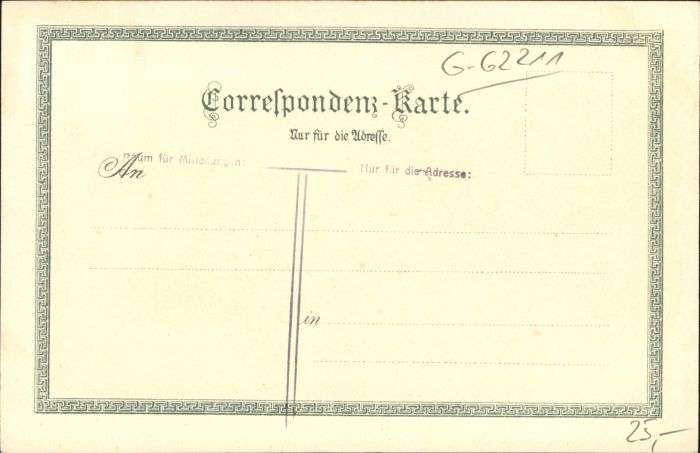 G-62211
Correspondenz-Karte.
Nur für die Adresse.
Raum für Mitteilungen:
Nur für die Adresse:
An
in
25,-